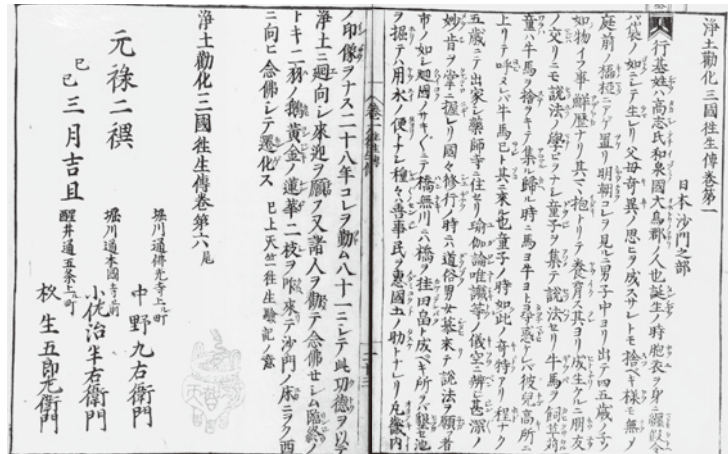 浄土勸化三國往生傳卷第一
日本沙門之部
行基姓ハ高志氏和泉國大鳥郡ノ人也誕生ノ時胞衣ヲ身ニ纒
ノ如ニテ生レリ父母奇異ノ思ヒヲ成スサレトモ捨ベキ様モ無
庭前ノ ニアゲ置リ明朝コレヲ見ルニ男子中ヨリ出テ四五歳ノ子ノ
如物イフ事鮮歴ナリ其マヽ抱トリテ養育ス其ヨリ成生タルニ朋友
ノ交リニモ説法ノ學ビヲナレ童子ヲ集テ説法セリ牛馬ヲ飼
童ハ牛馬ヲ捨ヲキテ集ル歸ル時ニ馬ヨ牛ヨト尋惑ケレバ彼兒高所ニ
上リテ呼 バ牛馬己ト其ニ來ル也童子ノ時如此ノ奇特アリ程ナク
五歳ニテ出家シ藥師寺ニ住セリ瑜伽論唯識等ノ儀空ニ辨ヒ甚深ノ
妙旨ヲ掌ニ握レリ國々修行ノ時ニ道俗男女慕來テ説法ヲ願フ者
市ノ如レ廻國ノサキ〲ニテ橋無川ニハ橋ヲ挂田畠ト成ベキ所ヲバ墾セ池
ヲ掘テハ用水ノ便トナレ種々ハ善事民ヲ惠國土ノ助トナレリ凡畿内
卷一往生傳
二十三
ノ印像ヲナス二十八年コレヲ勤ム八十一ニレテ此功徳ヲ以テ
浄土ニ廻向レ來迎ヲ願フ又諸人ヲ勸テ念佛セレム臨終ノ
トキ二羽ノ鵝黄金ノ蓮華二枝ヲ 來テ沙門ノ床ニヲク西
ニ向ヒ念佛レテ遷化ス 已上天竺往生驗記ノ意
浄土勸化三國往生傳卷第六尾
元祿二禩
己巳三月吉旦
堀川通佛光寺上ル町
中野九右衛門
堀川通本國寺前
小佐治半右衛門
醒井通五条上ル町
枚生五郎左衛門